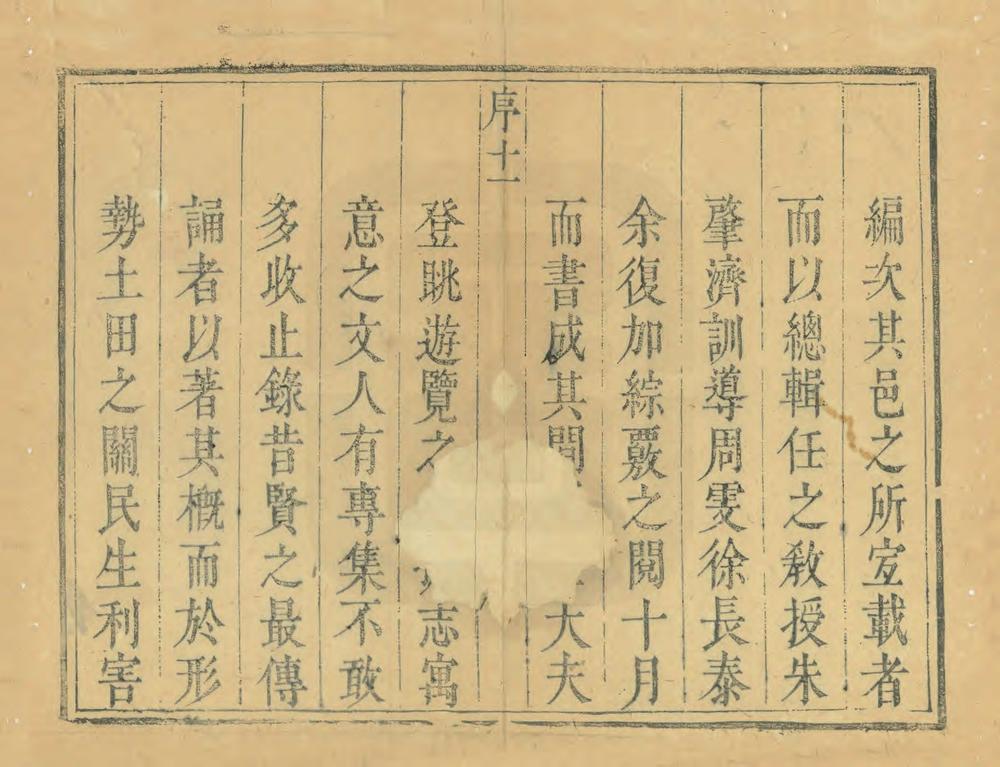 編次其邑之所宐載者
而以總輯任之敎授朱
肈濟訓導周雯徐長泰
余復加綜覈之閱十月
而書成其間大夫
序十一
登眺遊覽之志寓
意之文人有專集不敢
多收止錄昔賢之最傳
誦者以著其槪而於形
勢土田之關民生利害